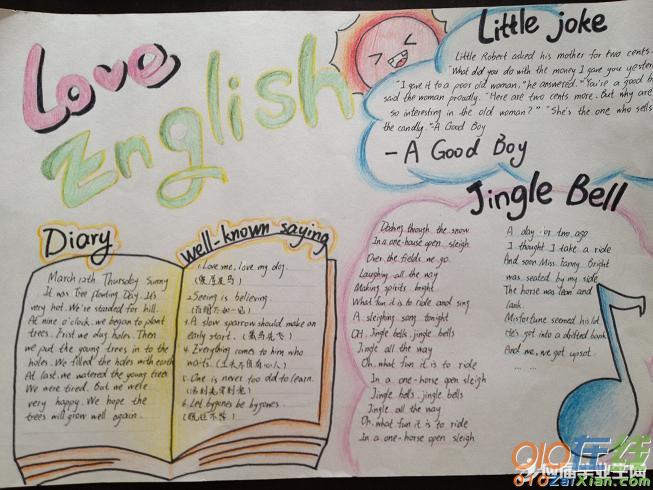 Love
English
Little joke
Little Robert asked his mother for two cents.
"What did you do with the money I gave you yester
"I gave it to a poor old woman," he answered. "You're a good b
said the woman proudly. "Here are two cents more. But why are
so interesting in the old woman?" "She's the one who sells
the candly."-A Good Boy
-A Good Boy
Diary
March 12th Thursday Sunny
It was Tree planting Day. It's
very hot. We're standed for hill.
At nine o'clock, we began to plant
trees. First we dog holes. Then
we put the young trees in to the
holes. We filled the holes with earth
At last, we watered the young trees
We were tired. But we were
very happy. We hope the
trees will grow well again.
well-known saying
1. Love me, love my dog.
(爱屋及乌)
2. Seeing is believing.
(百闻不如一见)
3. A slow sparrow should make an
early start. (笨鸟先飞)
4. Everything comes to him who
waits.
5. One is never too old to learn.
6. Let bygones be bygones.
(既往不咎)
Jingle Bell
Dashing through the snow
In a one-horse open sleigh
Over the fields we go.
Laughing all the way
Making spirits bright
What fun it is to ride and sing
A sleighing song tonight
OH. Jingle bells, jingle bells
Jingle all the way
Oh, what fun it is to ride
In a one-horse open sleigh
Jingle bells, jingle bells
Jingle all the way
Oh, what fun it is to ride
In a one-horse open sleigh
A day or two ago
I thought I take a ride
And soon Miss Fanny Bright
was seated by my side
The horse was lean and
lank.
Misfortune seemed his lot
He's got into a drifted bank
And we, we got upsot.
... ...
910在线
910ZaiXian.com